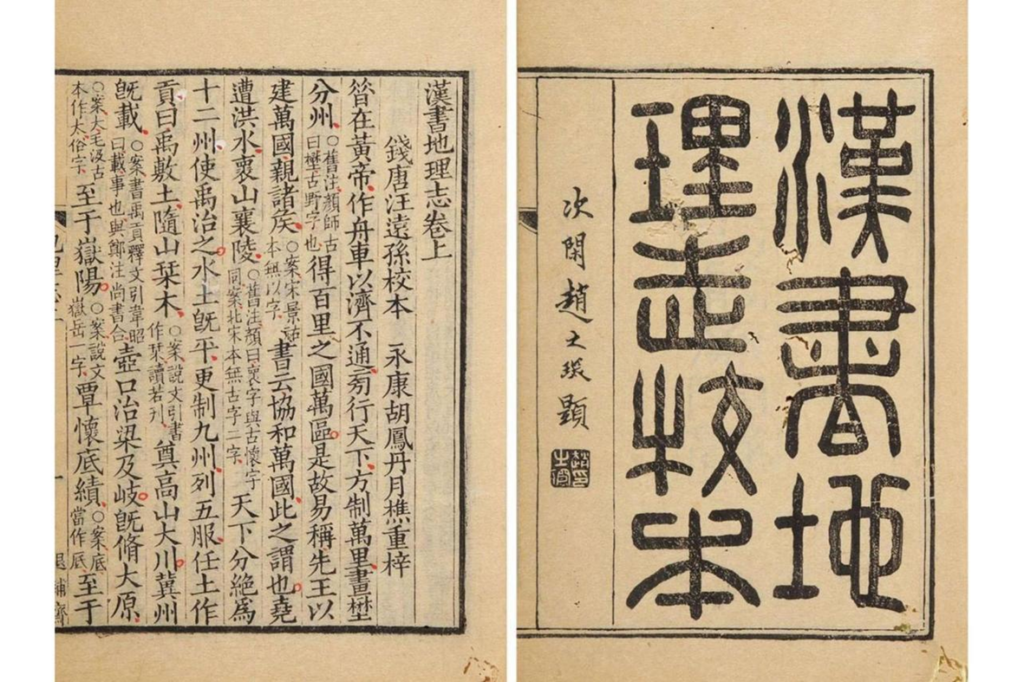 漢書地
理志校本
次閑趙之琛題
漢書地理志卷上
錢唐汪遠孫校本 永康胡鳳丹月樵重梓
昝在黃帝作舟車以濟不通旁行天下方制萬里畫壄
分州○舊注顏師古曰壄古野字也得百里之國萬區是故易稱先王以
建萬國親諸矦○案宋景祐本無以字書云協和萬國此之謂也堯
遭洪水褱山襄陵○舊注顏曰褱字與古懷字同案北宋本無古字二字天下分絕爲
十二州使禹治之水土旣平更制九州列五服任土作
貢曰禹敷土隨山栞木○案說文引書作栞讀若刊奠高山大川冀州
旣載○案書禹貢釋文引韋昭曰載事也與鄭注尚書合壺口治梁及岐旣脩大原
○案大毛汲古本作太俗字至于嶽陽○案說文嶽岳一字覃懷底績○案底當作厎至于